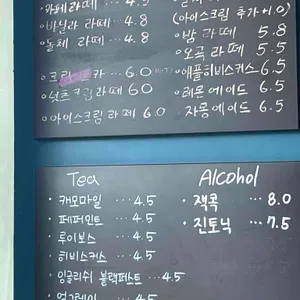 카페라떼 ... 4.5
·바닐라 라떼 ... 4.8
·돌체 라떼 ... 4.8
6.0
·넛츠크림라떼 6.0
·아이스크림라떼 6.0
(아이스크림 추가+1.0)
·밤 라떼 5.8
·오곡 라떼 5.5
·애플히비스커스 6.5
·레몬에이드 6.5
자몽에이드 6.5
Tea
·캐모마일 ... 4.5
·페퍼민트 ... 4.5
·루이보스 ... 4.5
·히비스커스 ... 4.5
·잉글리쉬 블랙퍼스트 ... 4.5
·얼그레이 ... 4.5
Alcohol
·잭콕 ... 8.0
·진토닉 ... 7.5